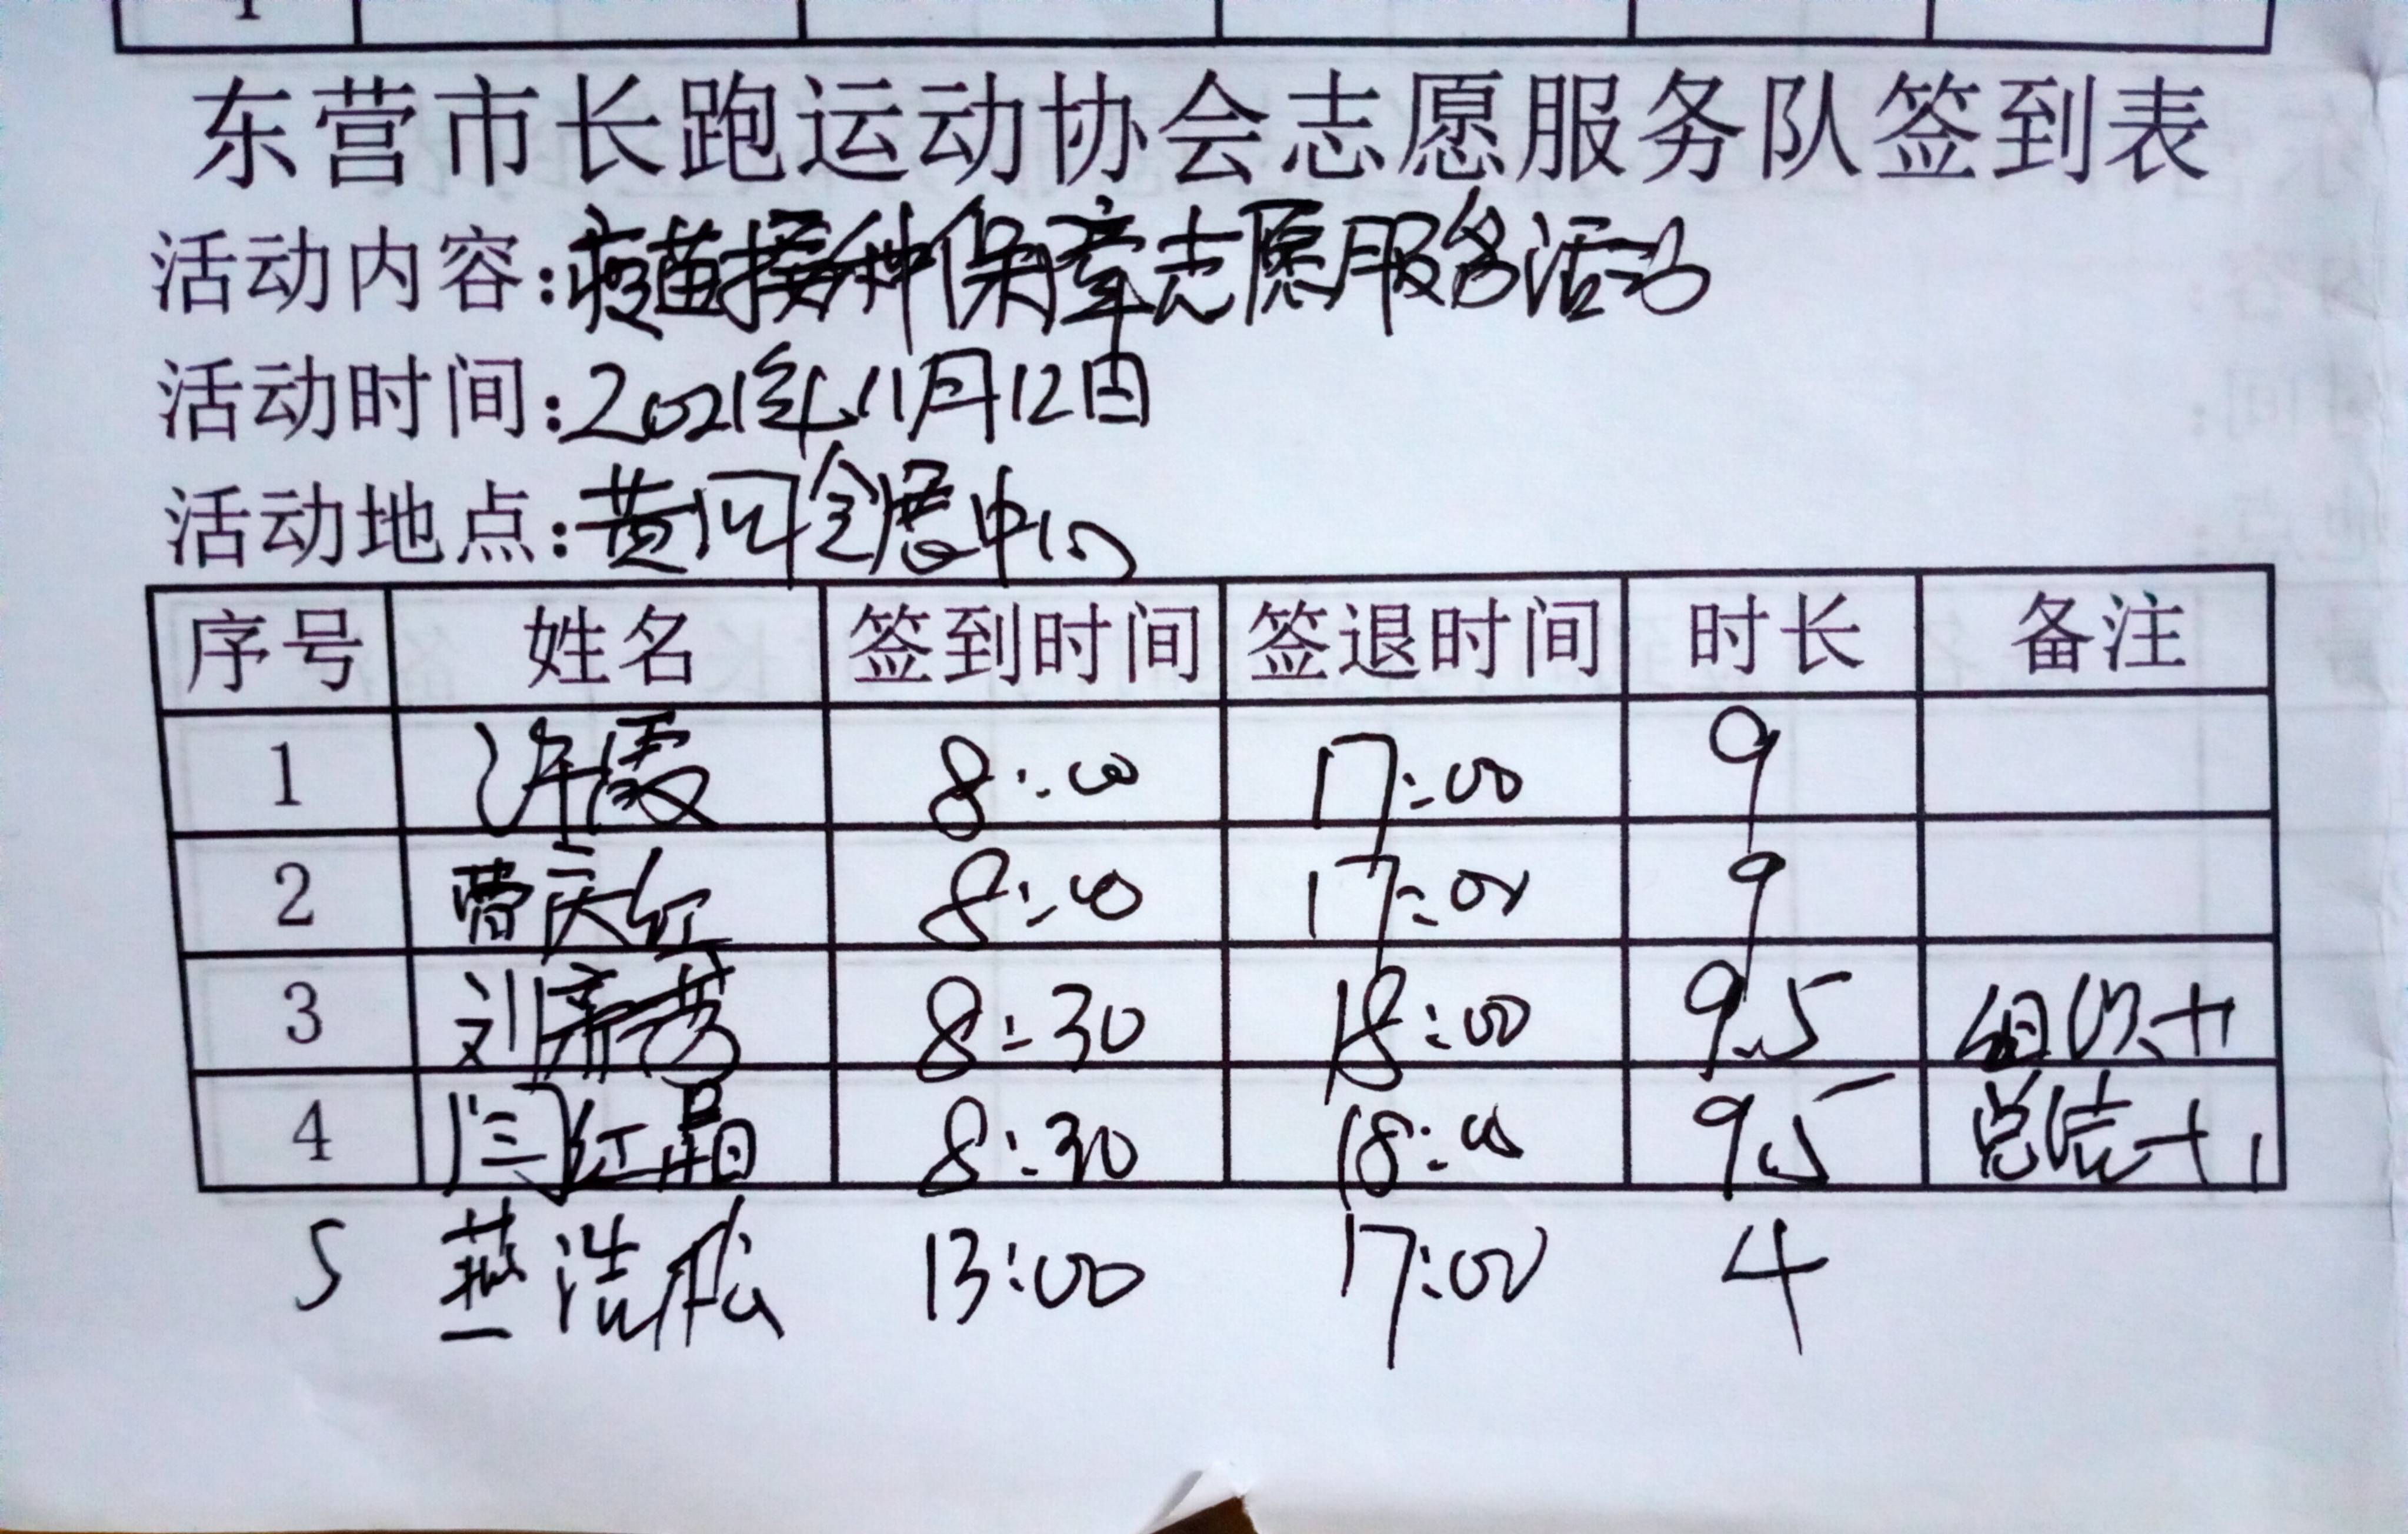 东营市长跑运动协会志愿服务队签到表
活动内容:疫苗接种保障志愿服务活动
活动时间:2021年11月12日
活动地点:黄河会展中心
序号 姓名 签到时间 签退时间 时长 备注
1 许霞 8:00 17:00 9
2 曹庆红 8:00 17:00 9
3 刘 8:30 18:00 9.5 组织+1
4 闫红晶 8:30 18:00 9.5 总结+1
5 燕浩松 13:00 17:00 4